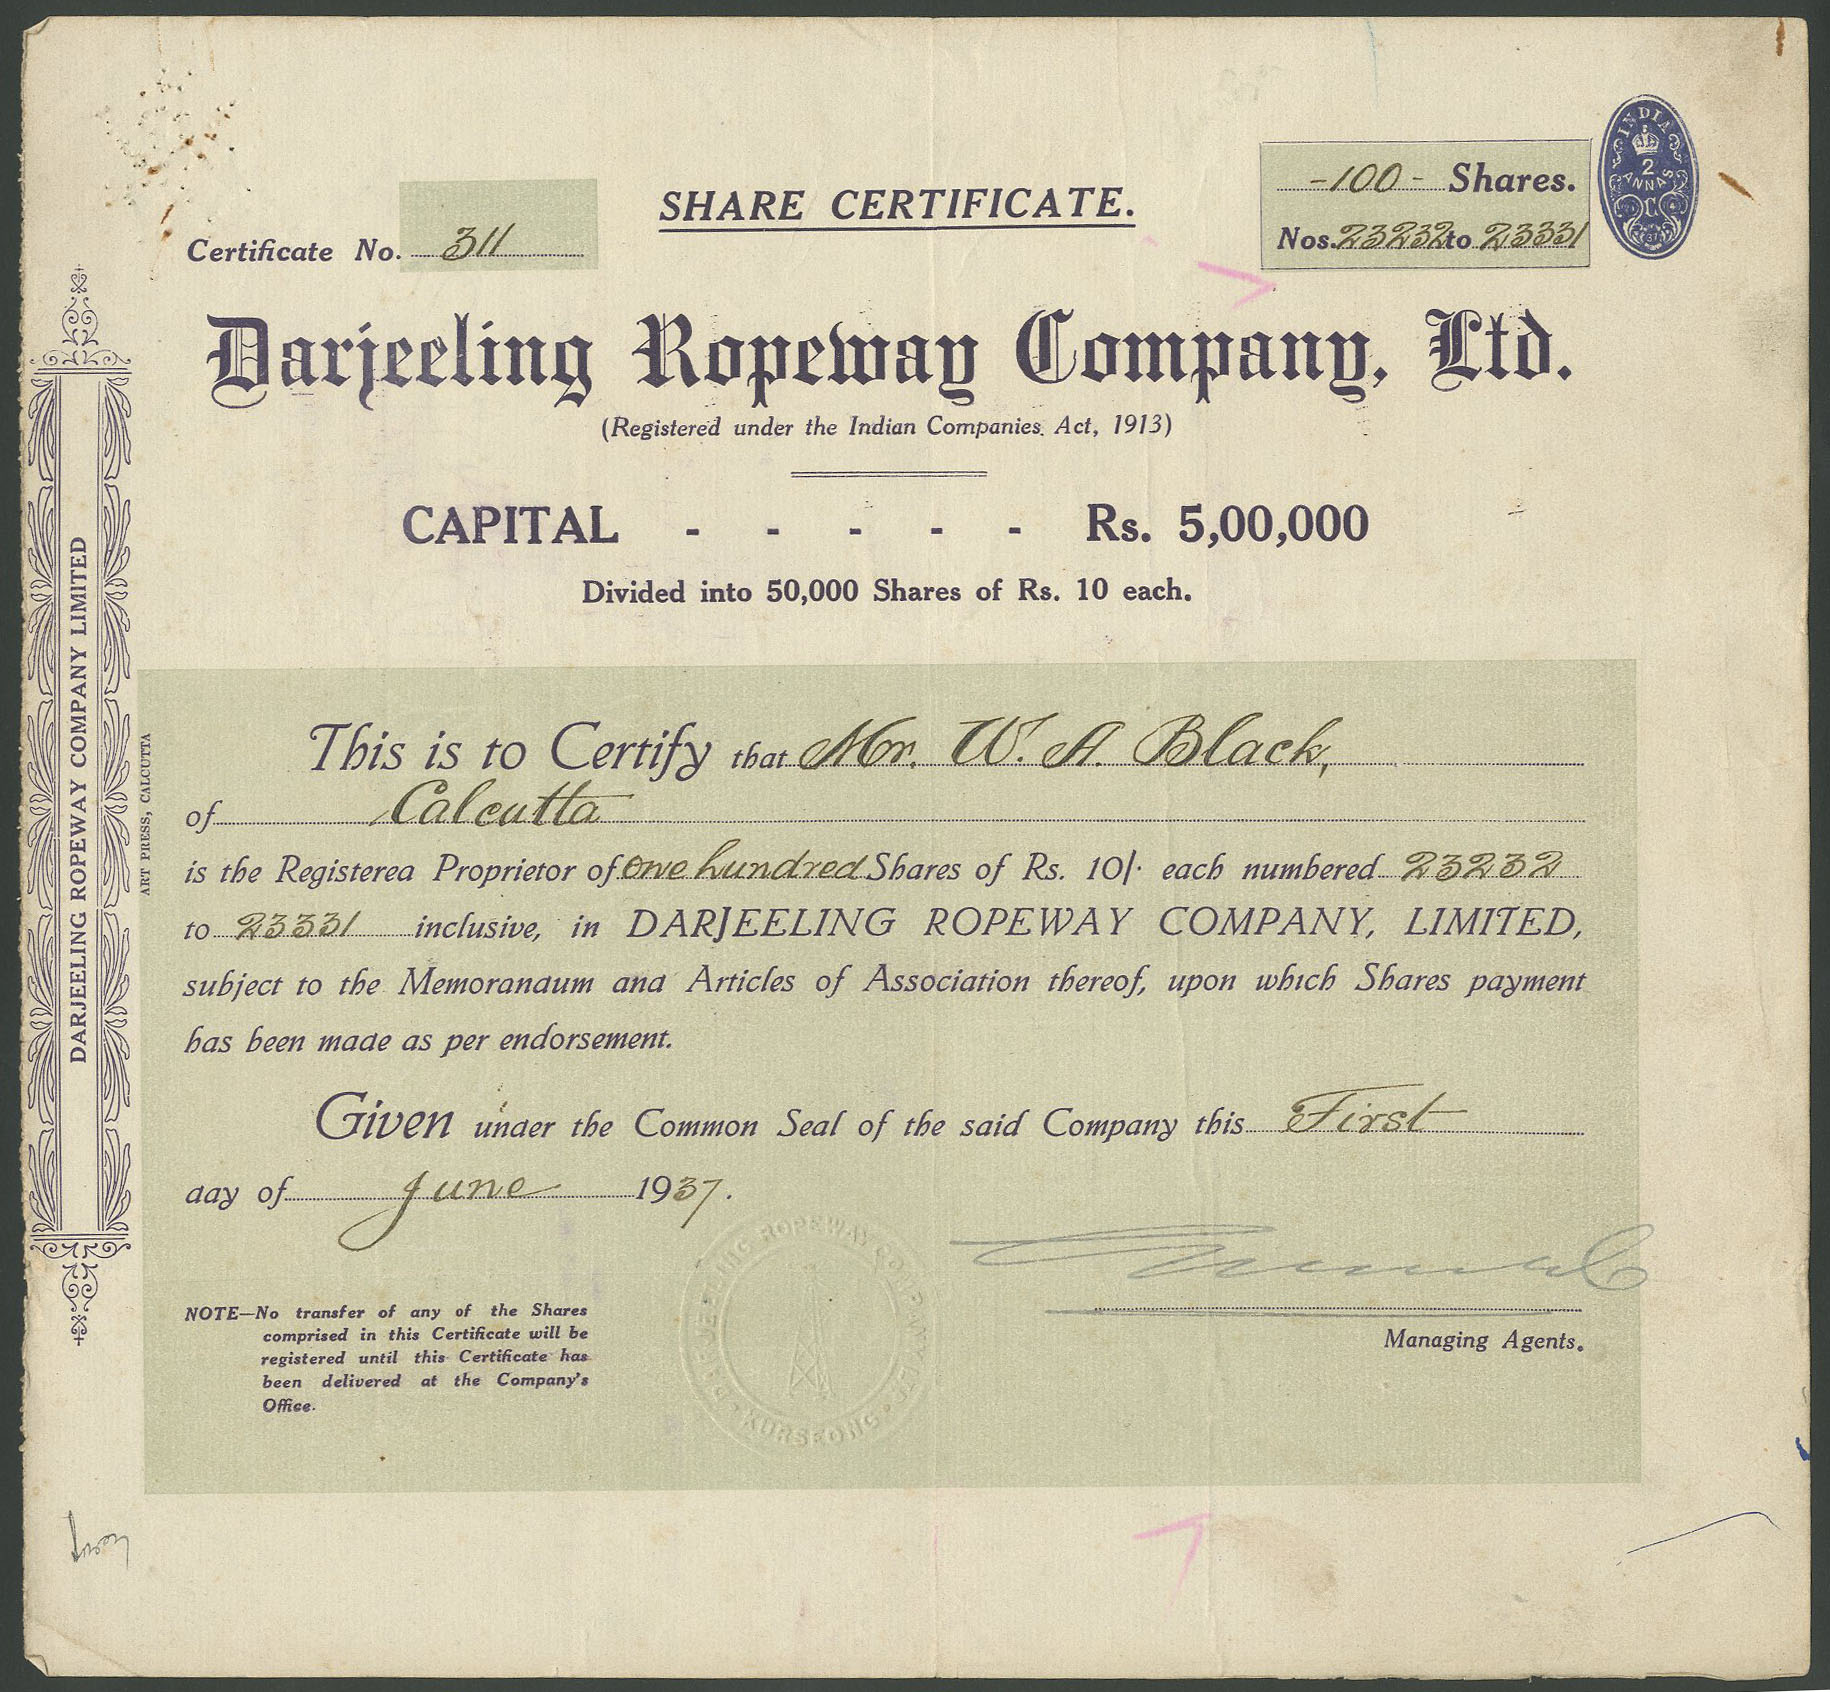 SHARE CERTIFICATE.
Certificate No. 311
-100- Shares.
Nos. 23232 to 23331
INDIA
2
ANNAS
Darjeeling Ropeway Company, Ltd.
(Registered under the Indian Companies Act, 1913)
CAPITAL - - - - - Rs. 5,00,000
Divided into 50,000 Shares of Rs. 10 each.
This is to Certify that Mr. W. A. Black,
of Calcutta
is the Registered Proprietor of one hundred Shares of Rs. 10/- each numbered 23232
to 23331 inclusive, in DARJEELING ROPEWAY COMPANY, LIMITED,
subject to the Memorandum and Articles of Association thereof, upon which Shares payment
has been made as per endorsement.
Given under the Common Seal of the said Company this First
day of June 1937.
Managing Agents.
NOTE—No transfer of any of the Shares
comprised in this Certificate will be
registered until this Certificate has
been delivered at the Company's
Office.
DARJEELING ROPEWAY COMPANY LIMITED
KURSEONG
DARJEELING ROPEWAY COMPANY LIMITED
ART PRESS, CALCUTTA